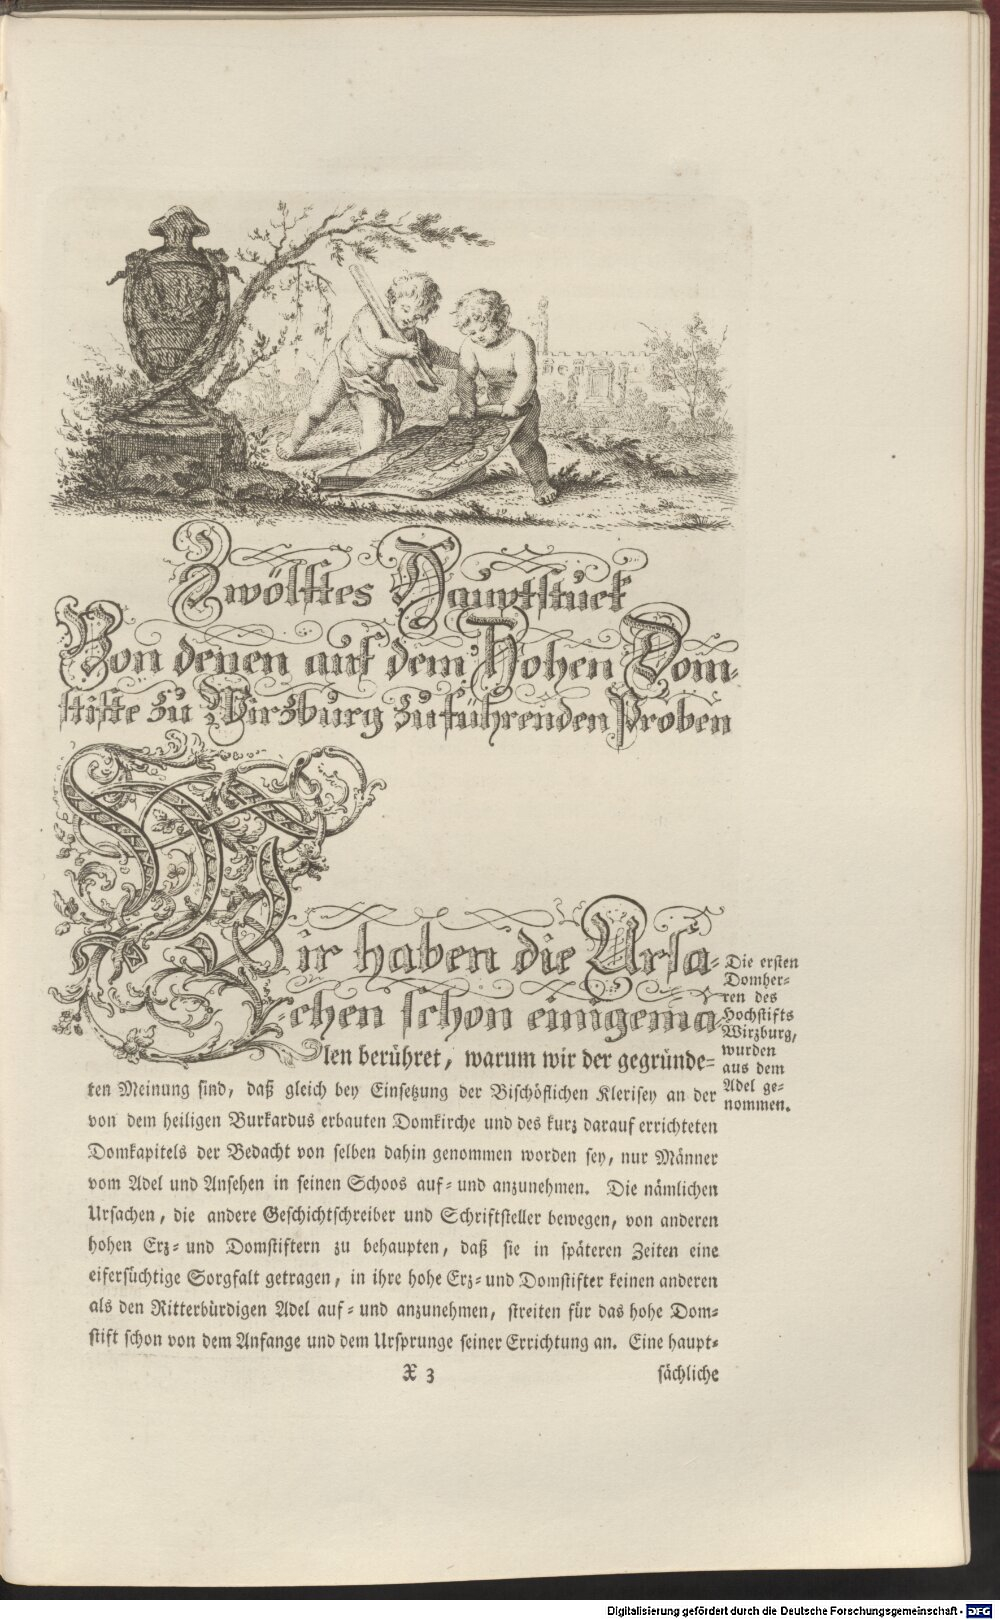 Zwölftes Hauptstück
Von denen auf dem Hohen Dom-
stifte zu Wirzburg zu führenden Proben
Wir haben die Ursa-
chen schon einigema-
len berühret, warum wir der gegründe-
ten Meinung sind, daß gleich bey Einsetzung der Bischöflichen Klerisey an der
von dem heiligen Burkardus erbauten Domkirche und des kurz darauf errichteten
Domkapitels der Bedacht von selben dahin genommen worden sey, nur Männer
vom Adel und Ansehen in seinen Schoos auf- und anzunehmen. Die nämlichen
Ursachen, die andere Geschichtschreiber und Schriftsteller bewegen, von anderen
hohen Erz- und Domstiftern zu behaupten, daß sie in späteren Zeiten eine
eifersüchtige Sorgfalt getragen, in ihre hohe Erz- und Domstifter keinen anderen
als den Ritterbürdigen Adel auf- und anzunehmen, streiten für das hohe Dom-
stift schon von dem Anfange und dem Ursprunge seiner Errichtung an. Eine haupt-
X 3
sächliche
Die ersten
Domher-
ren des
Hochstifts
Wirzburg,
wurden
aus dem
Adel ge-
nommen.
Digitalisierung gefördert durch die Deutsche Forschungsgemeinschaft - DFG